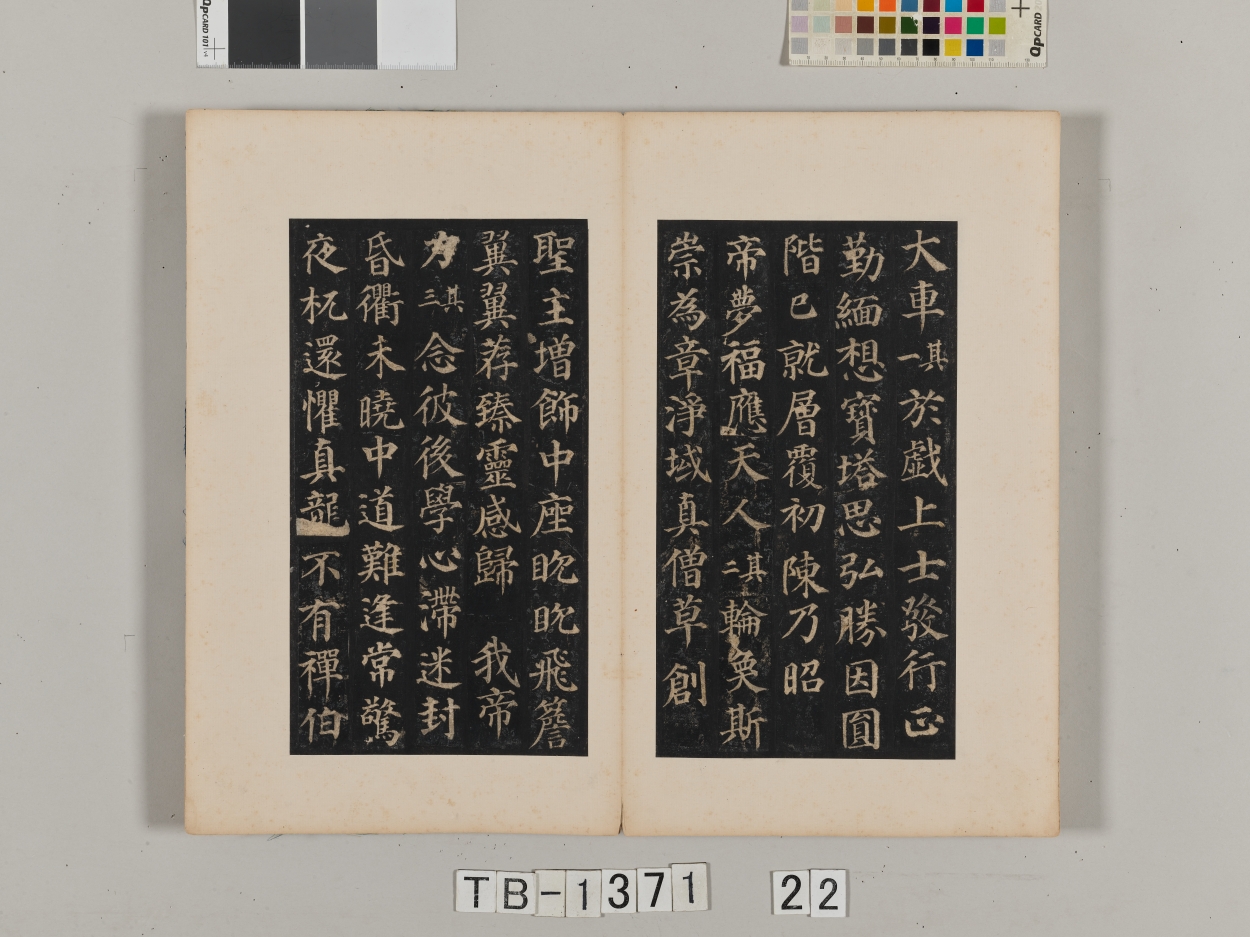 大車其一於戲上士發行正
勤緬想寶塔思弘勝因圓
階已就層覆初陳乃昭
帝夢福應天人其二輪奐斯
崇為章淨域真僧草創
聖主增飾中座眈眈飛簷
翼翼荐臻靈感歸 我帝
力其三念彼後學心滯迷封
昏衢未曉中道難逢常驚
夜杌還懼真龍不有禪伯
QPCARD 101 v4
QPCARD
TB-1371 22